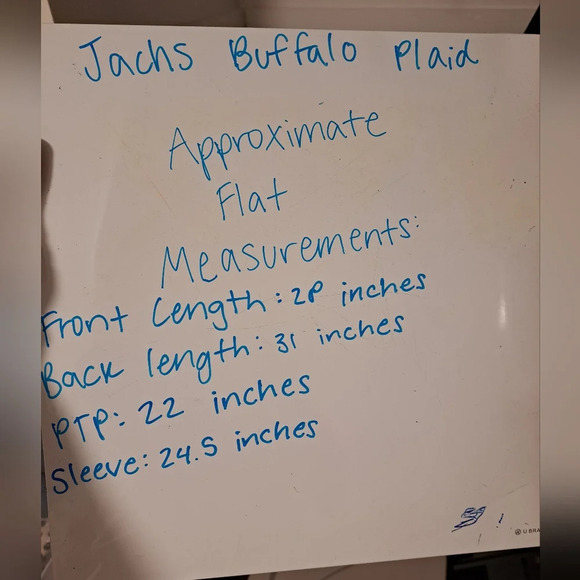 Jachs Buffalo Plaid
Approximate
Flat
Measurements:
Front Length: 28 inches
Back length: 31 inches
PTP: 22 inches
Sleeve: 24.5 inches
U BRA